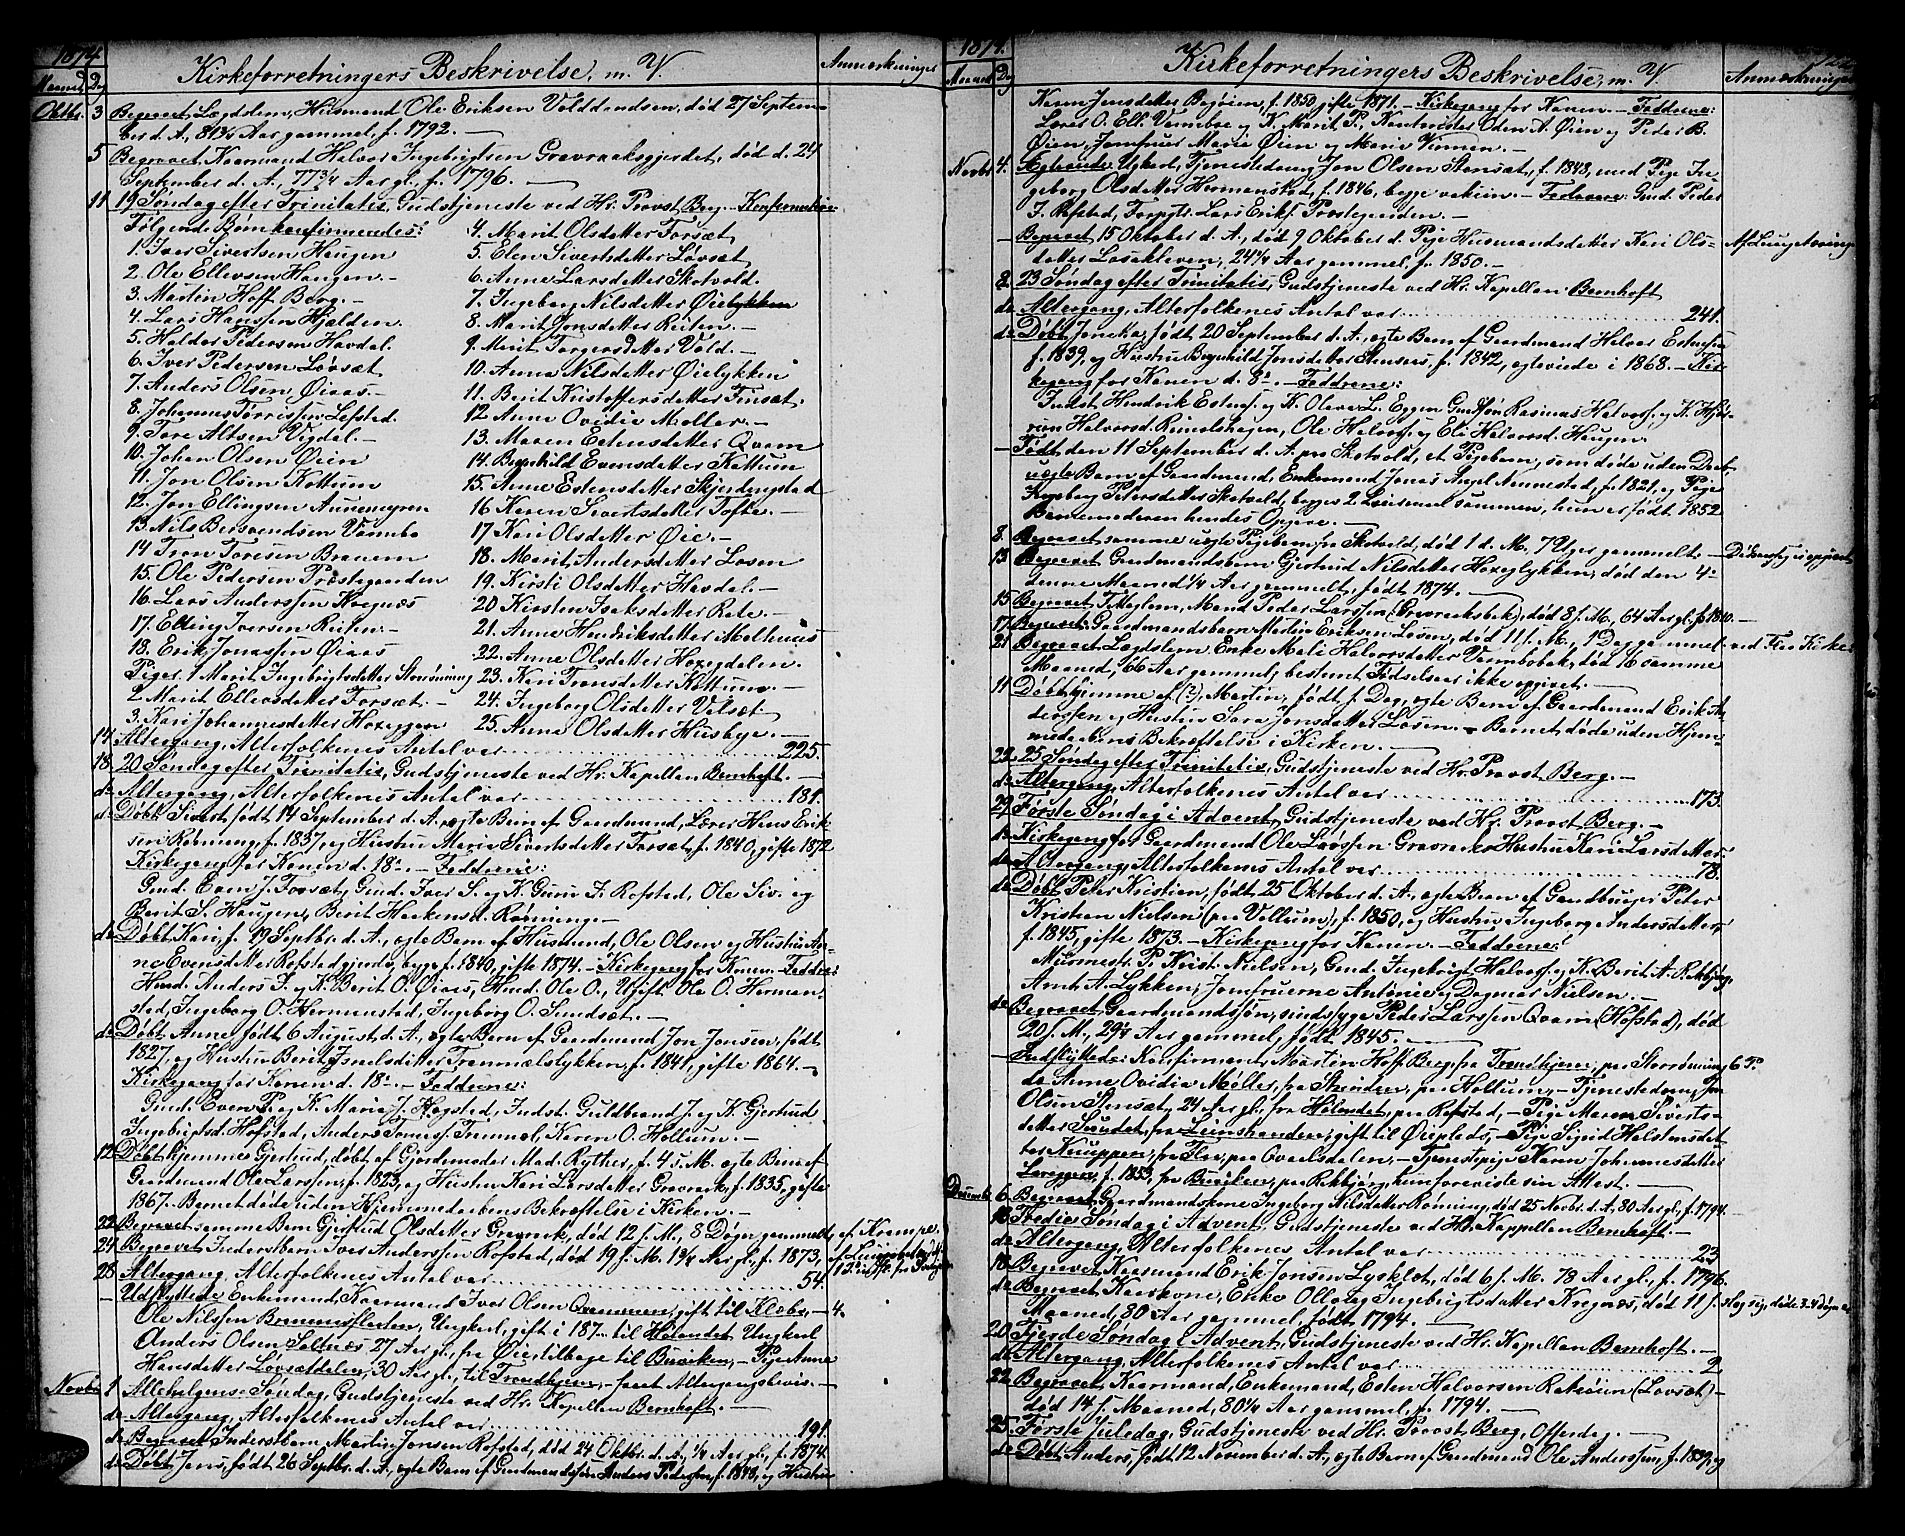 1874
Kirkeforretningers Beskrivelse, m. V.
Anmærkninger
Maaned Dag
Oktbr. 3 Begravet Lægdslem, Husmand Ole Eriksen Volddandsen, død 27 Septem-
ber d. A., 81¾ Aar gammel, f. 1792. —
5 Begravet Kaarmand Halvor Ingebrigtsen Gravraaksgjerdet, død d. 24
September d. A., 77¾ Aar gl., f. 1796. —
11 19 Søndag efter Trinitatis, Gudstjeneste ved Hr. Provst Berg. — Konfirmation.
Følgende Børn konfirmendes:
1. Iver Sivertsen Haugen
2. Ole Ellevsen Haugen. —
3. Martin Hoff Berg. —
4. Lars Hanssen Hjalden.
5. Haldor Pedersen Havdal.
6. Iver Pedersen Løvsæt
7. Anders Olsen Øiaas. —
8. Johannes Torrissen Lefstad.
9. Tore Altsen Vigdal. —
10. Johan Olsen Øiin
11. Jon Olsen Kottum
12. Jon Ellingsen Aunemyren
13. Nils Bersvendsen Vammbo
14 Tron Toresen Brauem
15. Ole Pedersen Præstegaarden
16. Lars Anderssen Kregnæs
17. Elling Iversen Reiten. —
18. Erik Jonassen Øiaas
Piger. 1 Marit Ingebrigtsdatter Storrønning
2. Marit Ellevsdatter Forsæt. —
3. Kari Johannesdatter Hoxeggen
4. Marit Olsdatter Forsæt
5. Elen Sivertsdatter Løvsæt
6. Anne Larsdatter Skotvold.
7. Ingeborg Nilsdatter Øielykken
8. Marit Jonsdatter Reiten. —
9. Marit Torgersdatter Vold. —
10. Anna Nilsdatter Øielykken
11. Berit Kristoffersdatter Finsæt.
12 Anne Ovidie Møller. —
13. Maren Estensdatter Qvam
14. Beynhild Evensdatter Kattum
15. Anne Estensdatter Skjerdingstad
16 Karen Sivertsdatter Tofte. —
17 Kari Olsdatter Øie. —
18. Marit Andersdatter Losen
19. Kirsti Olsdatter Havdal. —
20 Kirsten Isaksdatter Rate. —
21. Anne Hendriksdatter Melhuus
22. Anne Olsdatter Hoxegdalen.
23. Kari Tronsdatter Kottum. —
24. Ingeborg Olsdatter Velsæt
25. Anna Olsdatter Husbye. —
14 Altergang, Alterfolkenes Antal var 225.
18. 20 Søndag efter Trinitatis, Gudstjeneste ved Hr. Kapellan Bernhoft. —
do Altergang, Alterfolkenes Antal var 181.
do Døbt Sivert, født 14 September d. A., ægte Barn af Gaardmand, Lærer Hans Erik
sen Rønning, f. 1837 og Hustru Marie Sivertsdatter Forsæt, f. 1840, gifte 1872
Kirkegang for Konen d. 18de. — Fadderne:
Gmd. Even J. Forsæt, Gmd. Iver S. og K. Guru I. Rofstad, Ole Siv. og
Berit S. Haugen, Berit Haakensd. Rønning. —
do Døbt Kari, f. 19 Septbr. d. A., ægte Barn af Husmand, Ole Olsen og Hustru An-
ne Evensdatter Rofstadgjerde, begge f. 1840, gifte 1874. — Kirkegang for Konen — Faddere:
Husd. Anders I. og K. Berit O. Øiaas, Husd. Ole O., Ugift Ole O. Herman-
stad, Ingeborg O. Hermanstad, Ingeborg O. Sundsæt. —
do Døbt Anne, født 6 August d. A., ægte Barn af Gaardmand Jon Jonsen, født
1827, og Hustru Berit Israelsdatter Tranmælslykken, f. 1841, gifte 1864. —
Kirkegang for Konen d. 18de. — Fadderne:
Gmd. Even P. og K. Maria J. Hagstad, Indst. Guldbrand J. og K. Gjertrud
Ingebrigtsd. Hofstad, Anders Tomess. Trammel, Karen O. Hollum. —
12 Døbt hjemme Gjertrud, døbt af Gjordemoder Mad. Ryther, f. 4 s. M. ægte Barn af
Gaardmand Ole Larssen, f. 1823, og Hustru Kari Larsdatter Gravrack, f. 1835, gifte
1867. Barnet døde uden Hjemmedaabens Bekræftelse i Kirken. —
22 Begravet samme Barn Gjertrud Olsdatter Gravraak, død 12 s. M., 8 Døgn gammelt, af Krampe.
24 Begravet Inderstbarn Iver Anderssen Rofstad, død 19 s. M. 1¾ Aar gl., f. 1873,
25 Altergang, Alterfolkenes Antal var 54.
— Udflyttede Enkemand, Kaarmand Iver Olsen Qvammen, gift til Klæbo, — 4.
Ole Nilssen Brommesfletten, Ungkarl, gift i 187... til Hølandet Ungkarl
Anders Olsen Saltnæs 27 Aar gl., fra Øie, tilbage til Buviken, — Pige Anne
Hansdatter Lovsætdelen, 30 Aar gl., til Trondhjem, — faaet Altergangsbevis. —
Novbr 1 Allehelgens Søndag, Gudstjeneste ved Hr. Kapellan Bernhoft. —
do Altergang, Alterfolkenes Antal var 191.
do Begravet Inderstbarn Martin Jonsen Rofstad, død 24 Oktbr. d. A., ¼ Aar gl., f. 1874.
do Døbt Jens, født 26 Septbr. d. A., ægte Barn af Gaardmandssøn Anders Pedersen, f. 1848, og Hustru
1874.
Kirkeforretningers Beskrivelse, m. V
Anmærkninger
Maaned Dag
Karen Jensdatter Bogøien, f. 1850, gifte 1871. — Kirkegang for Konen. — Fadderne:
Lærer O. Ell. Vammbo og K. Marit P., Kantmester Oden A. Øien og Peder B.
Øien, Jomfruer Marie Øien og Marie Vinnen. —
Novbr 4. Ægteviede Ugkarl, Tjenestedreng Jon Olsen Stensæt, f. 1848, med Pige In-
geborg Olsdatter Hermanstad, f. 1846, begge vakcin. — Forlovere: Gmd. Peder
I. Rofstad, Forpgtr. Lars Eriks. Prestegaarden. —
— Begravet 15 Oktober d. A., død 9 Oktober d. Pige Husmandsdatter Kari Ols-
datter Losakleven, 24¼ Aar gammel, f. 1850. —
Af Lungetæring
8. 23 Søndag efter Trinitatis, Gudstjeneste ved Hr. Kapellan Bernhoft
do Altergang, Alterfolkenes Antal var 241.
do Døbt Jonika, født 20 September d. A., ægte Barn af Gaardmand Halvor Estensen
f. 1839, og Hustru Beynhild Jonsdatter Stensæs, f. 1842, ægteviede i 1868. — Kir-
kegang for Konen d. 8de. — Fadderne:
Indst. Hendrik Estens. og K. Olava L. Eggen Gmdssøn Rasmus Halvors., og K. 
ren Halvorsd. Rimolshagen, Ole Halvors. og Eli Halvorsd. Haugen.
— Født den 11 September d. A. paa Skotvold, et Pigebarn, som døde uden Daab,
uægte Barn af Gaardmand, Enkemand Jonas Angel Nennestad, f. 1821, og Pige
Ingeborg Petersdatter Skotvold, begges 2. Leiermaal sammen, hun er født 1852
Barnemoderen hendes Opgive. —
8. Begravet samme uægte Pigebarn fra Skotvold, død 1 d. M., 7 Uger gammelt. —
13 Begravet Gaardmandsbarn Gjertrud Nilsdatter Hoxeglykken, død den 4de
denne Maaned ¼ Aar gammelt, født 1874. —
15 Begravet Titeglem, Mand Peder Larssen (Gravraaksbek), død 8 s. M., 64 Aar gl., f. 1810. —
17 Begravet: Gaardmandsbarn Martin Eriksen Losen, død 11 s. M., 1 Dag gammel ved Flaa Kirke.
21 Begravet Lægdslem, Enke Mali Halvorsdatter Vammbobek, død 16 samme
Maaned, 66 Aar gammel, bestemt Fødselsaar ikke opgivet. —
11 Døbt hjemme af (?), Martin, født s. Dag, ægte Barn af Gaardmand Erik An-
derssen og Hustru Sara Jonsdatter Losen. — Barnet døde uden Hjem-
medaabens Bekræftelse i Kirken. —
22. 25 Søndag efter Trinitatis, Gudstjeneste ved Hr. Provst Berg. —
do Altergang, Alterfolkenes Antal var 173.
29 Første Søndag i Advent, Gudstjeneste ved Hr. Provst Berg. —
do Kirkegang for Gaardmand Ole Larssen Gravraaks Hustru Kari Larsdatter.
do Altergang, Alterfolkenes Antal var 78.
do Døbt Peter Kristian, født 25 Oktober d. A., ægte Barn af Gaardbruger Peter
Kristian Nielsen (paa Vollum), f. 1850, og Hustru Ingeborg Andersdatter,
f. 1845, gifte 1873. — Kirkegang for Konen. — Fadderne:
Murmest. P. Krist. Nielsen, Gmd. Ingebrigt Halvors. og K. Berit A. Rekbjørg,
Arnt A. Lykken, Jomfruerne Antonie og Dagmar Nielsen. —
do Begravet Gaardmandssøn, sindssyge Peder Larssen Qvam (Hofstad), død
20 s. M., 29¼ Aar gammel, født 1845. —
— Indflyttede: Konfirmant Martin Hoff Berg, fra Trondhjem, paa Storrønning 6 P.
do Anne Ovidia Møller, fra Strinden, paa Hollum, — Tjenestedreng Jon
Olsen Stensæt, 24 Aar gl., fra Hølandet, paa Rofstad, — Pige Maren Siverts-
datter Saudet, fra Leinstranden, gift til Øieplads, — Pige Sigrid Halstensdat
ter Knuppen, fra Flaa, paa Qvaalsdalen, — Tjenestpige Karen Johannesdatter
Loreggen, f. 1853, fra Buviken, paa Rekbjørg, hun foreviste sin Attest. —
Decembr 6. Begravet Gaardmandskone Ingeborg Nilsdatter Rønning, død 25 Novbr. d. A. 80 Aar gl., f. 1794. —
Tredie Søndag i Advent, Gudstjeneste ved Hr. Kappellan Bernhoft. —
do Altergang, Alterfolkenes Antal var 23
18 Begravet Kaarmand Erik Jonsen Lysklæt, død 6 s. M. 78 Aar gl., f. 1796.
do Begravet Kaarkone, Enke Ollotag Ingebrigtsdatter Kregnæs, død 11 s.
Maaned, 80 Aar gammel, født 1794. —
20 Fjerde Søndag i Advent, Gudstjeneste ved Hr. Kapellan Bernhoft. —
do Altergang, Alterfolkenes Antal var 2
22 Begravet Kaarmand, Enkemand, Esten Halvorsen Ratøiin (Lovsæt) —
død 14 s. Maaned, 80¼ Aar gammel, f. 1794. —
25. Første Juledag, Gudstjeneste ved Hr. Provst Berg, Offerdag. —
do Døbt Anders, født 12 November d. A., ægte Barn af Gaardmand Ole Anderssen, f. 1839, og